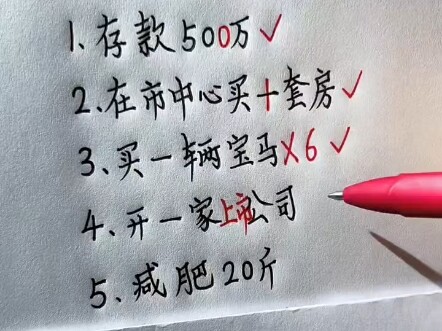 1.存款500万✓
2.在市中心买十套房✓
3.买一辆宝马X6✓
4.开一家上市公司
5.减肥20斤